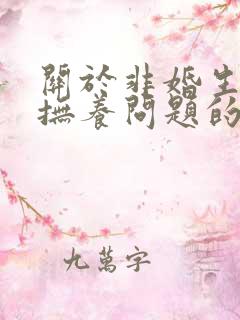 關於非婚生
撫養問題的
九萬字